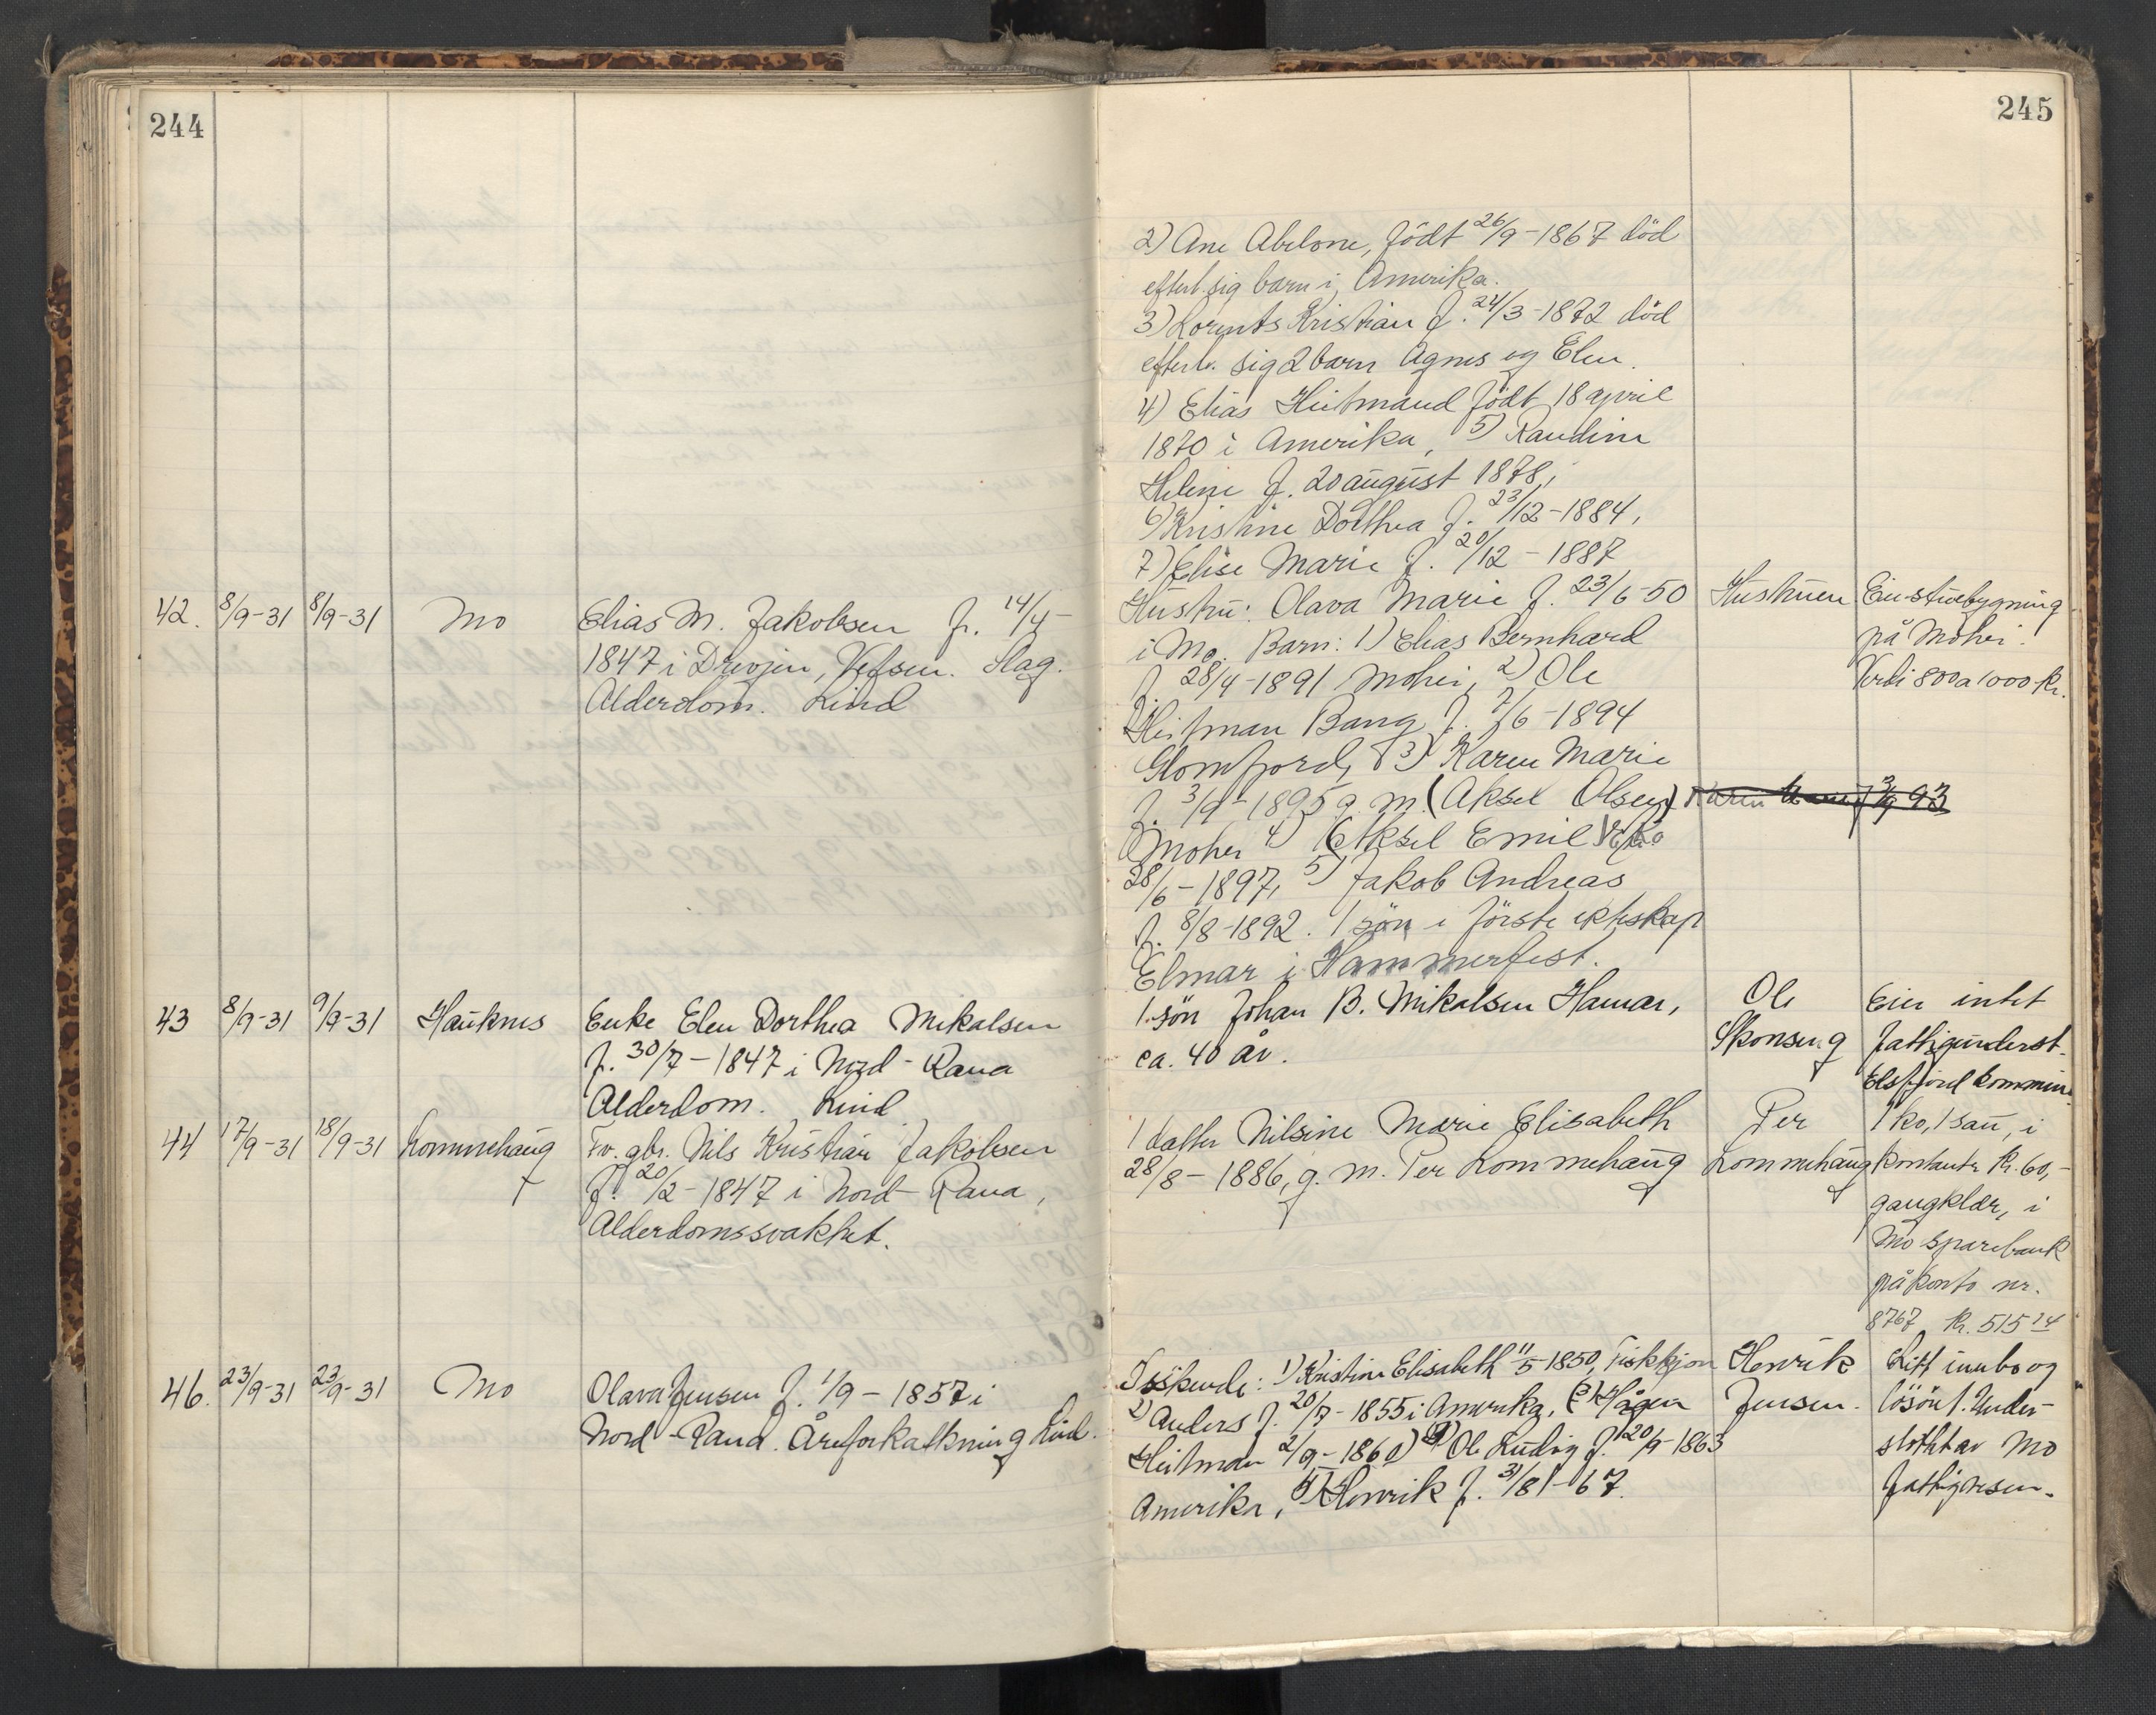 244
245
2) Ane Abelone, født 26/9-1867 död
efterl. sig barn i Amerika.
3) Lorents Kristian f. 24/3-1872 död
efterl. sig 2 barn Agnes og Elen.
4) Elias Heitmand född 18 april
1870 i Amerika, 5) Raudine
Helene f. 20 august 1878,
6) Kristine Dorthea f. 23/12-1884,
7) Elise Marie f. 20/12-1887
42. 8/9-31 8/9-31 Mo Elias M. Jakobsen f. 14/4-
1847 i Drevjen, Vefsen. Slag.
Alderdom. Lind
Hustru: Olava Marie f. 23/6-50
i Mo. Barn: 1) Elias Bernhard
f. 28/4-1891 Mohei, 2) Ole
Heitman Bang f. 7/6-1894
Glomfjord, 3) Karen Marie
f. 3/9-1895 g. m. (Aksel Olsen) Karen Marie f 3/9 93
Mohei 4) Aksel Emil
28/6-1897, 5) Jakob Andreas
f. 8/8-1892. 1 sön i förste ekteskap
Elmar i Hammerfest.
Hustruen
Ein stuebygning
på Mohei.
Verdi 800 a 1000 kr.
43 8/9-31 9/9-31 Hauknes Enke Elen Dorthea Mikalsen
f. 30/7-1847 i Nord-Rana
Alderdom. Lind
1 sön Johan B. Mikalsen Hamar,
ca. 40 år.
Ole
Skonseng
Eier intet
Fattigunderst.
Elsfjord kommun.
44 17/9-31 18/9-31 Lommehaug Fv. gbr. Nils Kristian Jakobsen
f. 20/2-1847 i Nord-Rana,
Alderdomssvakhet.
1 datter Nilsine Marie Elisabeth
28/8-1886, g. m. Per Lommehaug
Per
Lommehaug
1 ko, 1 sau, i
kontante kr. 60,-
gangklær, i
Mo Sparebank
på konto nr.
8767 kr. 515 74
46. 23/9-31 23/9-31 Mo Olava Jensen f. 1/9-1857 i
Nord-Rana. Åreforkalkning Lind.
Søskende: 1) Kristine Elisabeth 11/5-1850, Fiskkjøn
2) Anders f. 20/7-1855 i Amerika, 3) Hågen
Heitman 2/9-1860) 4) Ole Ludvig f. 20/9-1863
Amerika, 5) Henrik f. 31/8-67.
Henrik
Jensen.
Litt innbo og
lösöre. Under-
støttet av Mo
fattigvesen.